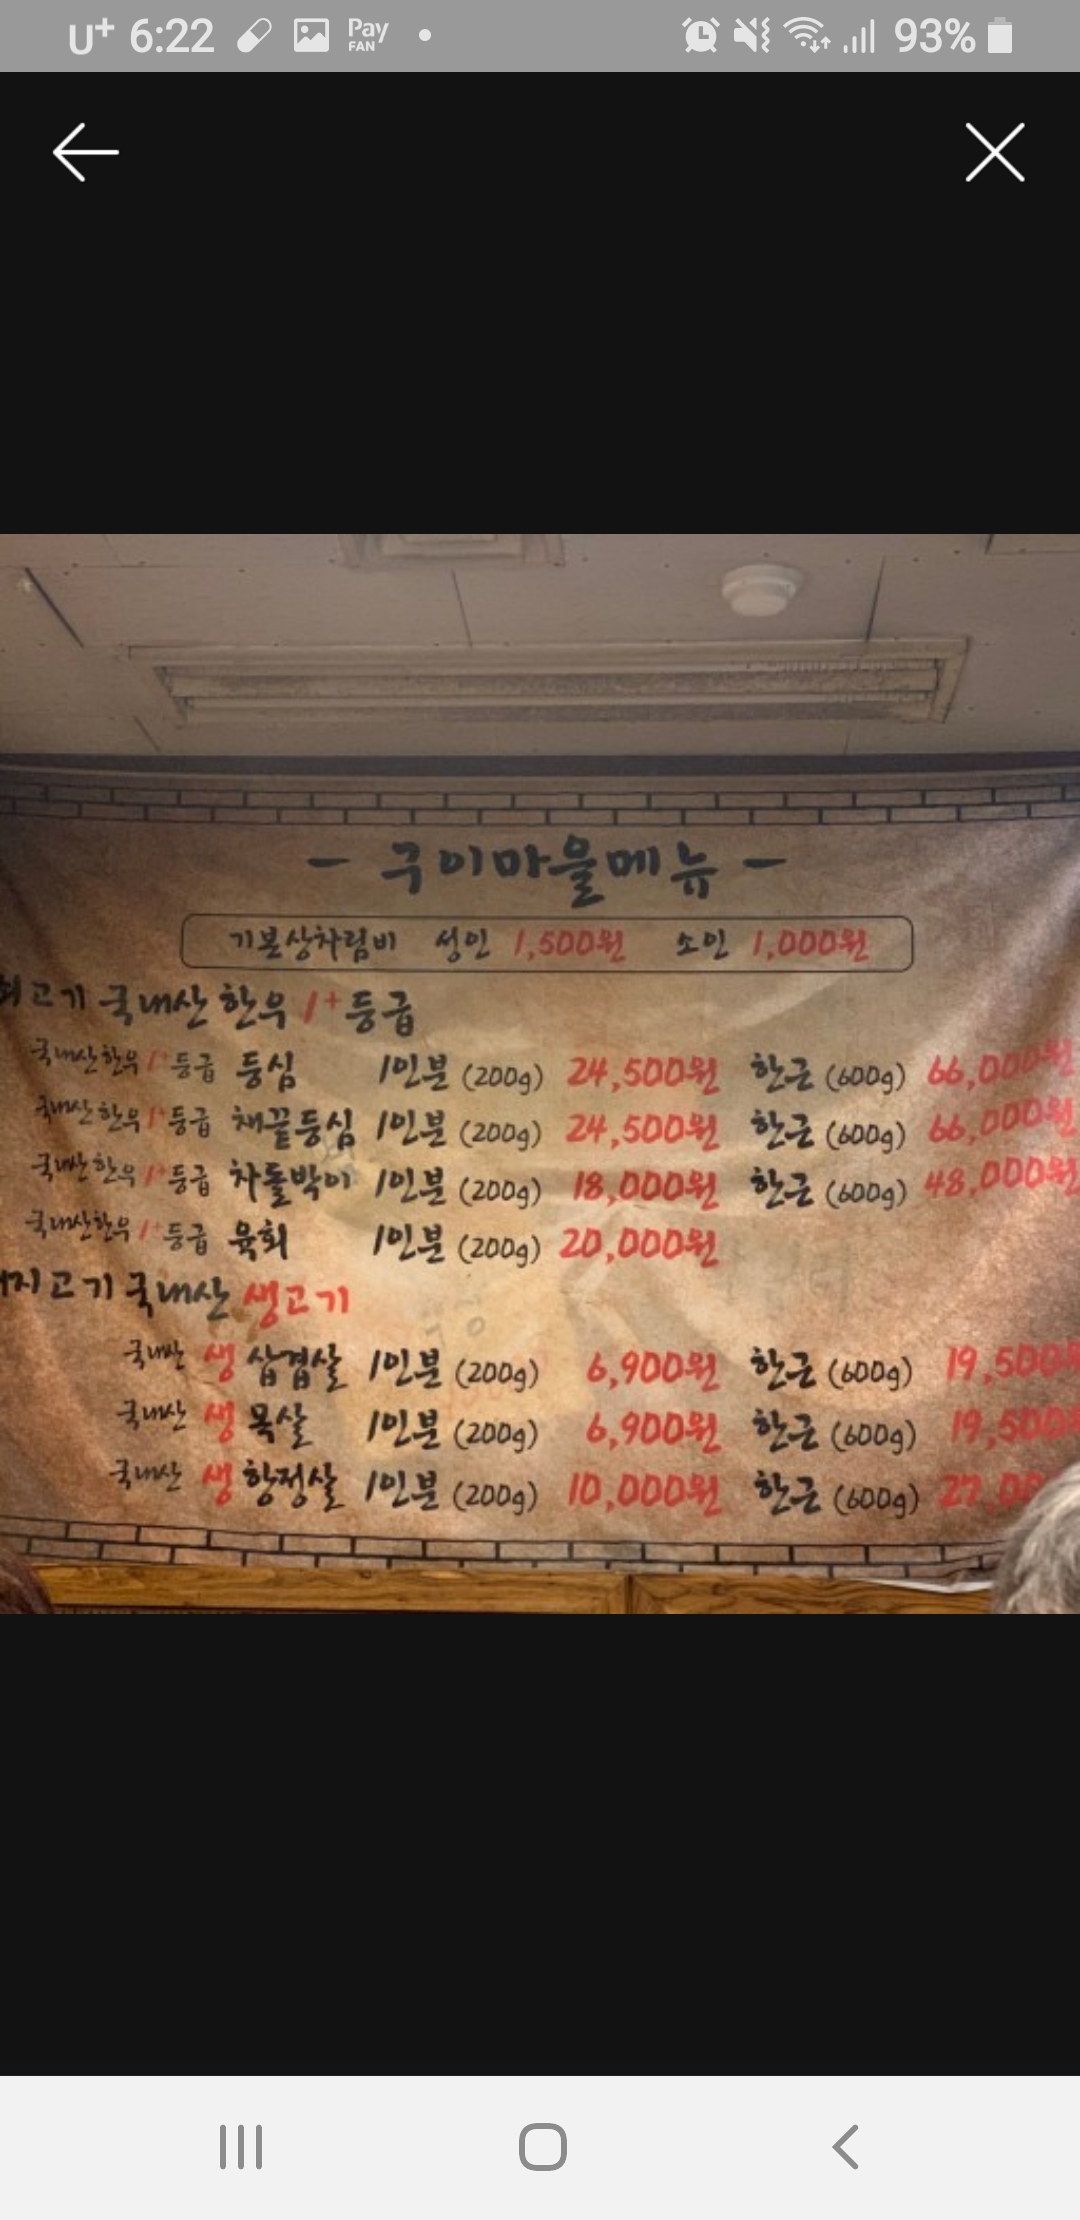 U+ 6:22 Pay FAN 93%
- 구이마을메뉴 -
기본상차림비 성인 1,500원 소인 1,000원
쇠고기 국내산 한우 1+ 등급
국내산한우 1+등급 등심 1인분 (200g) 24,500원 한근 (600g) 66,000원
국내산한우 1+등급 채끝등심 1인분 (200g) 24,500원 한근 (600g) 66,000원
국내산한우 1+등급 차돌박이 1인분 (200g) 18,000원 한근 (600g) 48,000원
국내산한우 1+등급 육회 1인분 (200g) 20,000원
지고기 국내산 생고기
국내산 생 삼겹살 1인분 (200g) 6,900원 한근 (600g) 19,500원
국내산 생 목살 1인분 (200g) 6,900원 한근 (600g) 19,500
국내산 생 항정살 1인분 (200g) 10,000원 한근 (600g) 27,00